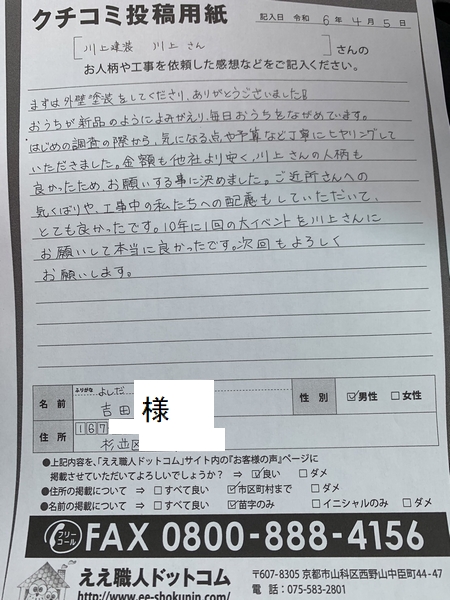 クチコミ投稿用紙
記入日 令和 6年 4月 5日
川上建装 川上さん さんの
お人柄や工事を依頼した感想などをご記入ください。
まずは外壁塗装をしてくださり、ありがとうございました!!
おうちが新品のようによみがえり、毎日おうちをながめています。
はじめの調査の際から、気になる点や予算など丁寧にヒヤリングして
いただきました。金額も他社より安く、川上さんの人柄も
良かったため、お願いする事に決めました。ご近所さんへの
気くばりや、工事中の私たちへの配慮もしていただいて、
とても良かったです。10年に1回の大イベントを川上さんに
お願いして本当に良かったです。次回もよろしく
お願いします。
ふりがな よしだ
名前 吉田 様 性別 ☑男性 □女性
住所 167
杉並区
●上記内容を、「ええ職人ドットコム」サイト内の『お客様の声』ページに
掲載させていただいてよろしいでしょうか? ⇒ ☑良い □ダメ
●住所の掲載について ⇒ □すべて良い ☑市区町村まで □ダメ
●名前の掲載について ⇒ □すべて良い ☑苗字のみ □イニシャルのみ □ダメ
フリーコール FAX 0800-888-4156
ええ職人ドットコム
http://www.ee-shokunin.com/
〒607-8305 京都市山科区西野山中臣町44-47
電話:075-583-2801